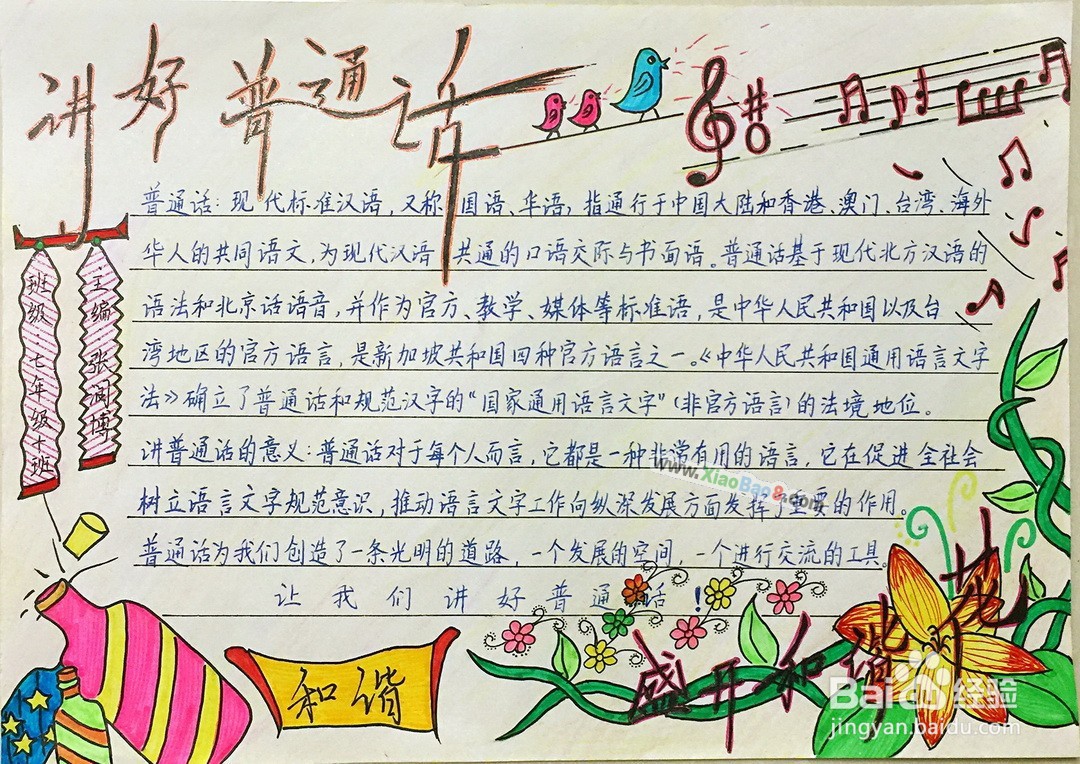 讲好普通话
普通话：现代标准汉语，又称国语、华语，指通行于中国大陆和香港、澳门、台湾、海外
华人的共同语文，为现代汉语共通的口语交际与书面语。普通话基于现代北方汉语的
语法和北京话语音，并作为官方、教学、媒体等标准语，是中华人民共和国以及台
湾地区的官方语言，是新加坡共和国四种官方语言之一。《中华人民共和国通用语言文字
法》确立了普通话和规范汉字的“国家通用语言文字”（非官方语言）的法境地位。
讲普通话的意义：普通话对于每个人而言，它都是一种非常有用的语言，它在促进全社会
树立语言文字规范意识，推动语言文字工作向纵深发展方面发挥了重要的作用。
普通话为我们创造了一条光明的道路，一个发展的空间，一个进行交流的工具。
让我们讲好普通话！
班级：七年级十班
主编：张润博
和谐
盛开和谐花
www.XiaoBao8.com
Baidu经验
jingyan.baidu.com